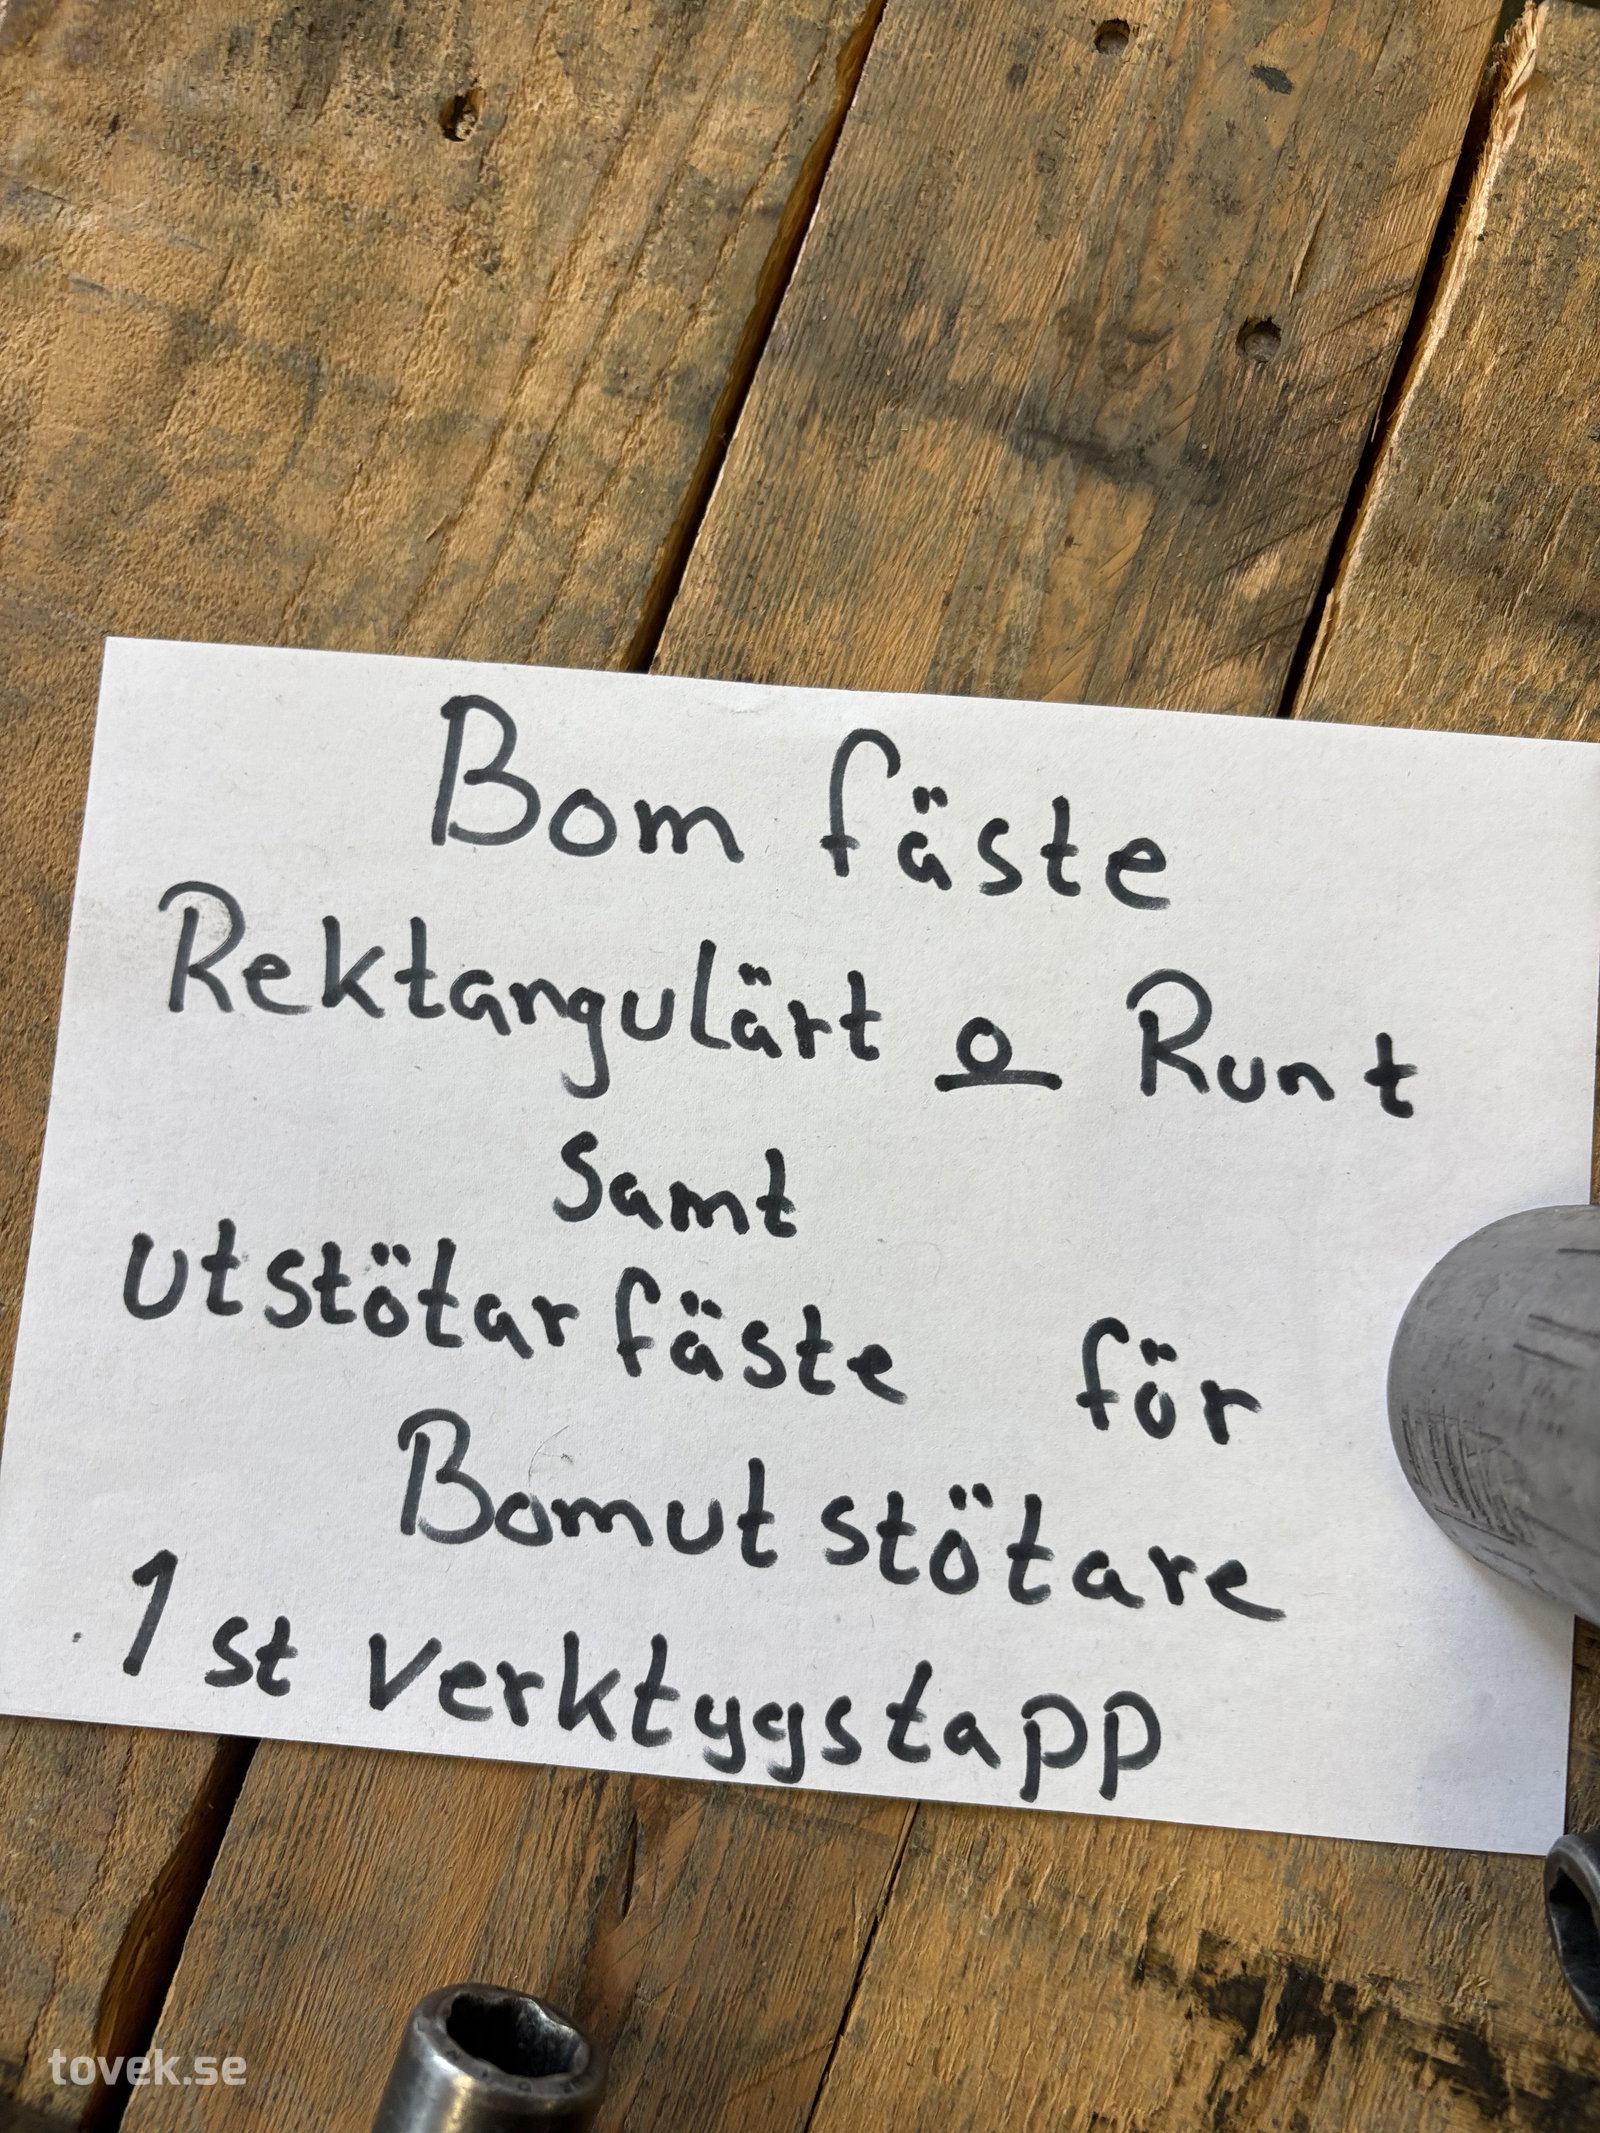 Bom fäste
Rektangulärt o Runt
Samt
utstötarfäste för
Bomutstötare
1 st verktygstapp
tovek.se